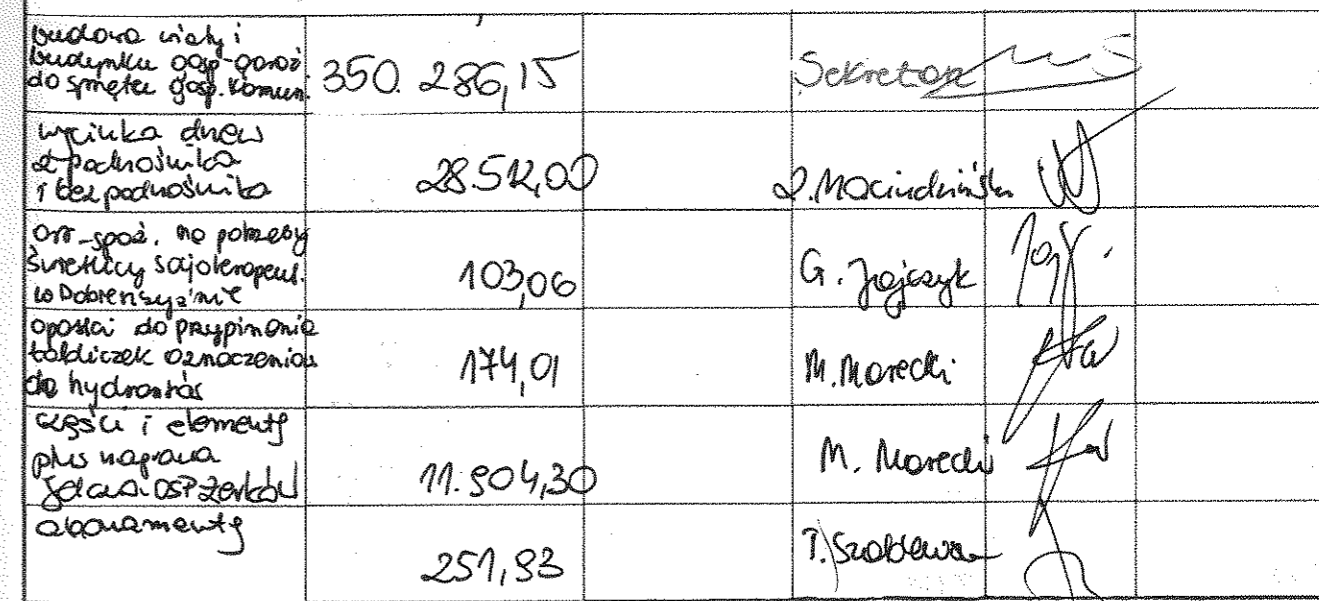 budowa wiaty i
budynku gosp-garaż.
do sprzętu gosp. komun.
350.286,15
Sekretarz
wycinka drzew
z podnośnika
i bez podnośnika
28.512,00
art-spoż. na potrzeby
świetlicy socjoterapeut.
w Dobieszczyźnie
103,06
G. Jajczyk
opaski do przypinania
tabliczek oznaczenia
do hydrantów
174,01
M. Marecki
części i elementy
plus naprawa
Jelcza OSP Żerków
11.904,30
M. Marecki
abonamenty
251,93